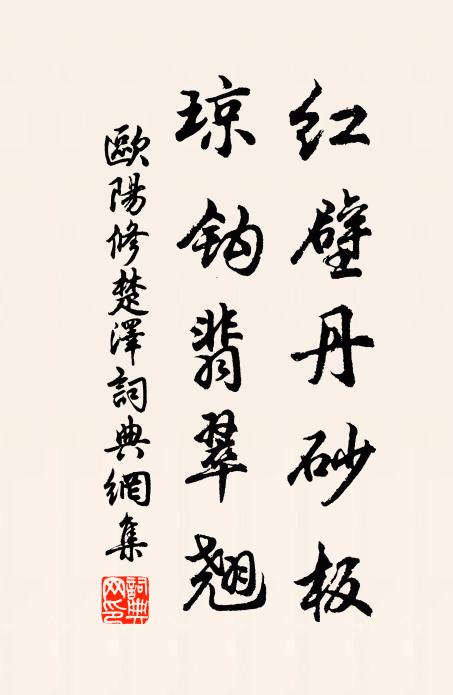 红壁丹砂板
琼钩翡翠翘
歐陽修楚澤詞典網集
詞典網印